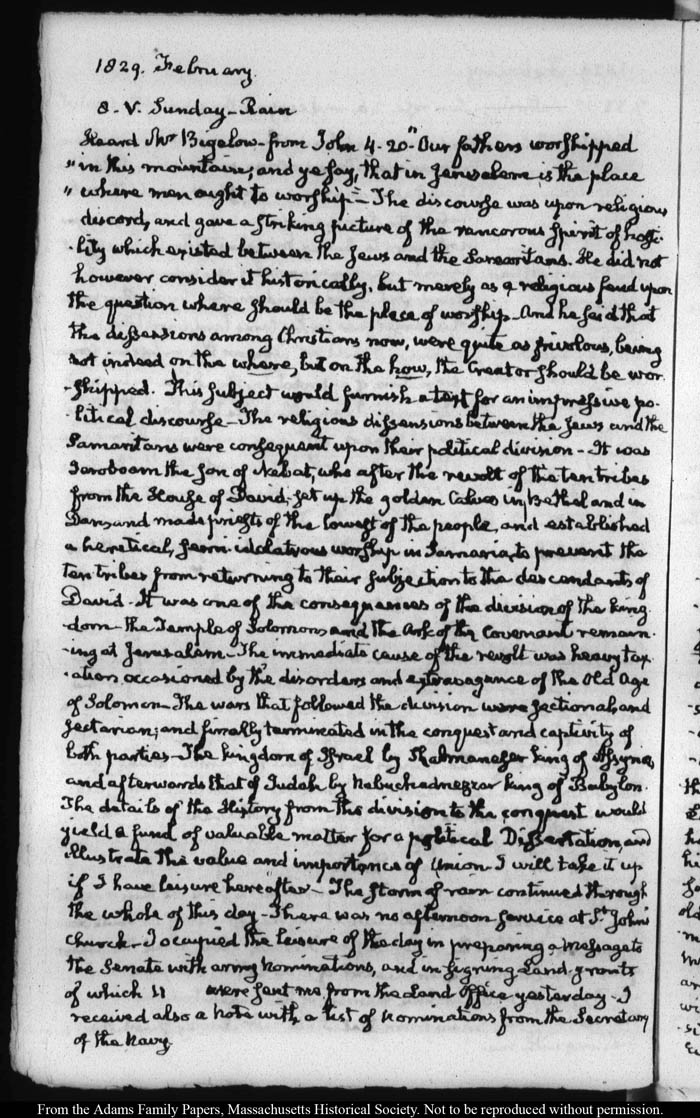 1829. February.
8. V. Sunday - Rain
Heard Mr Bigelow - from John 4. 20. "Our fathers worshipped
"in this mountain; and ye say, that in Jerusalem is the place
"where men ought to worship" - The discourse was upon religious
discord, and gave a striking picture of the rancorous spirit of hosti-
-lity which existed between the Jews and the Samaritans. He did not
however consider it historically, but merely as a religious feud upon
the question where should be the place of worship - And he said that
the dissensions among Christians now, were quite as frivolous, being
not indeed on the where, but on the how, the Creator should be wor-
-shipped. This subject would furnish a text for an impressive po-
-litical discourse - The religious dissensions between the Jews and the
Samaritans were consequent upon their political division - It was
Jaroboam the son of Nebat, who after the revolt of the ten tribes
from the House of David, set up the golden Calves in Bethel and in
Dan, and made priests of the lowest of the people, and established
a heretical, semi-idolatrous worship in Samaria, to prevent the
ten tribes from returning to their subjection to the descendants of
David - It was one of the consequences of the division of the king-
-dom - the Temple of Solomon, and the Ark of the Covenant remain-
-ing at Jerusalem - The immediate cause of the revolt was heavy tax-
-ation, occasioned by the disorders and extravagance of the old age
of Solomon - The wars that followed the division were sectional, and
sectarian; and finally terminated in the conquest and captivity of
both parties - The kingdom of Israel by Shalmaneser king of Assyria,
and afterwards that of Judah by Nabuchadnezzar king of Babylon.
The details of the History from the division to the conquest would
yield a fund of valuable matter for a political Dissertation, and
illustrate the value and importance of Union. I will take it up
if I have leisure hereafter - The storm of rain continued through
the whole of this day - There was no afternoon service at St. John's
church - I occupied the leisure of the day in preparing a Message to
the Senate with army Nominations, and in signing Land-grants
of which 11 were sent me from the Land Office yesterday - I
received also a note with a list of Nominations from the Secretary
of the Navy.
From the Adams Family Papers, Massachusetts Historical Society. Not to be reproduced without permission.